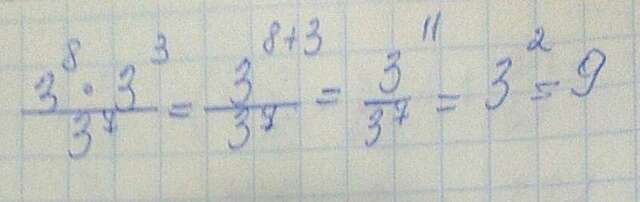 3^8 · 3^3 / 3^7 = 3^{8+3} / 3^7 = 3^11 / 3^7 = 3^2 = 9